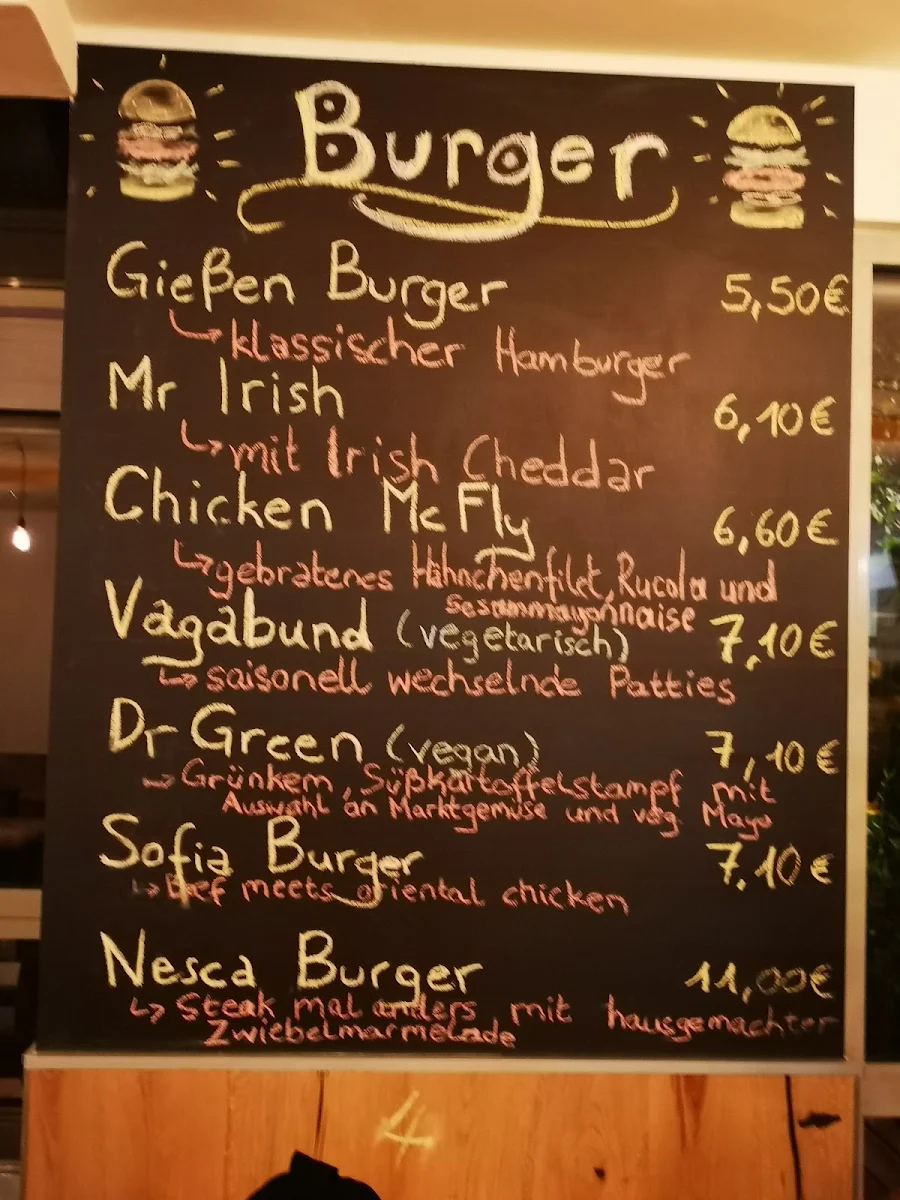 Burger
Gießen Burger 5,50€
klassischer Hamburger
Mr Irish 6,10€
mit Irish Cheddar
Chicken McFly 6,60€
gebratenes Hähnchenfilet, Rucola und
Sesammayonnaise
Vagabund (vegetarisch) 7,10€
saisonell wechselnde Patties
Dr Green (vegan) 7,10€
Grünkern, Süßkartoffelstampf mit
Auswahl an Marktgemüse und veg. Mayo
Sofia Burger 7,10€
Beef meets oriental chicken
Nesca Burger 11,00€
Steak mal anders, mit hausgemachter
Zwiebelmarmelade
4